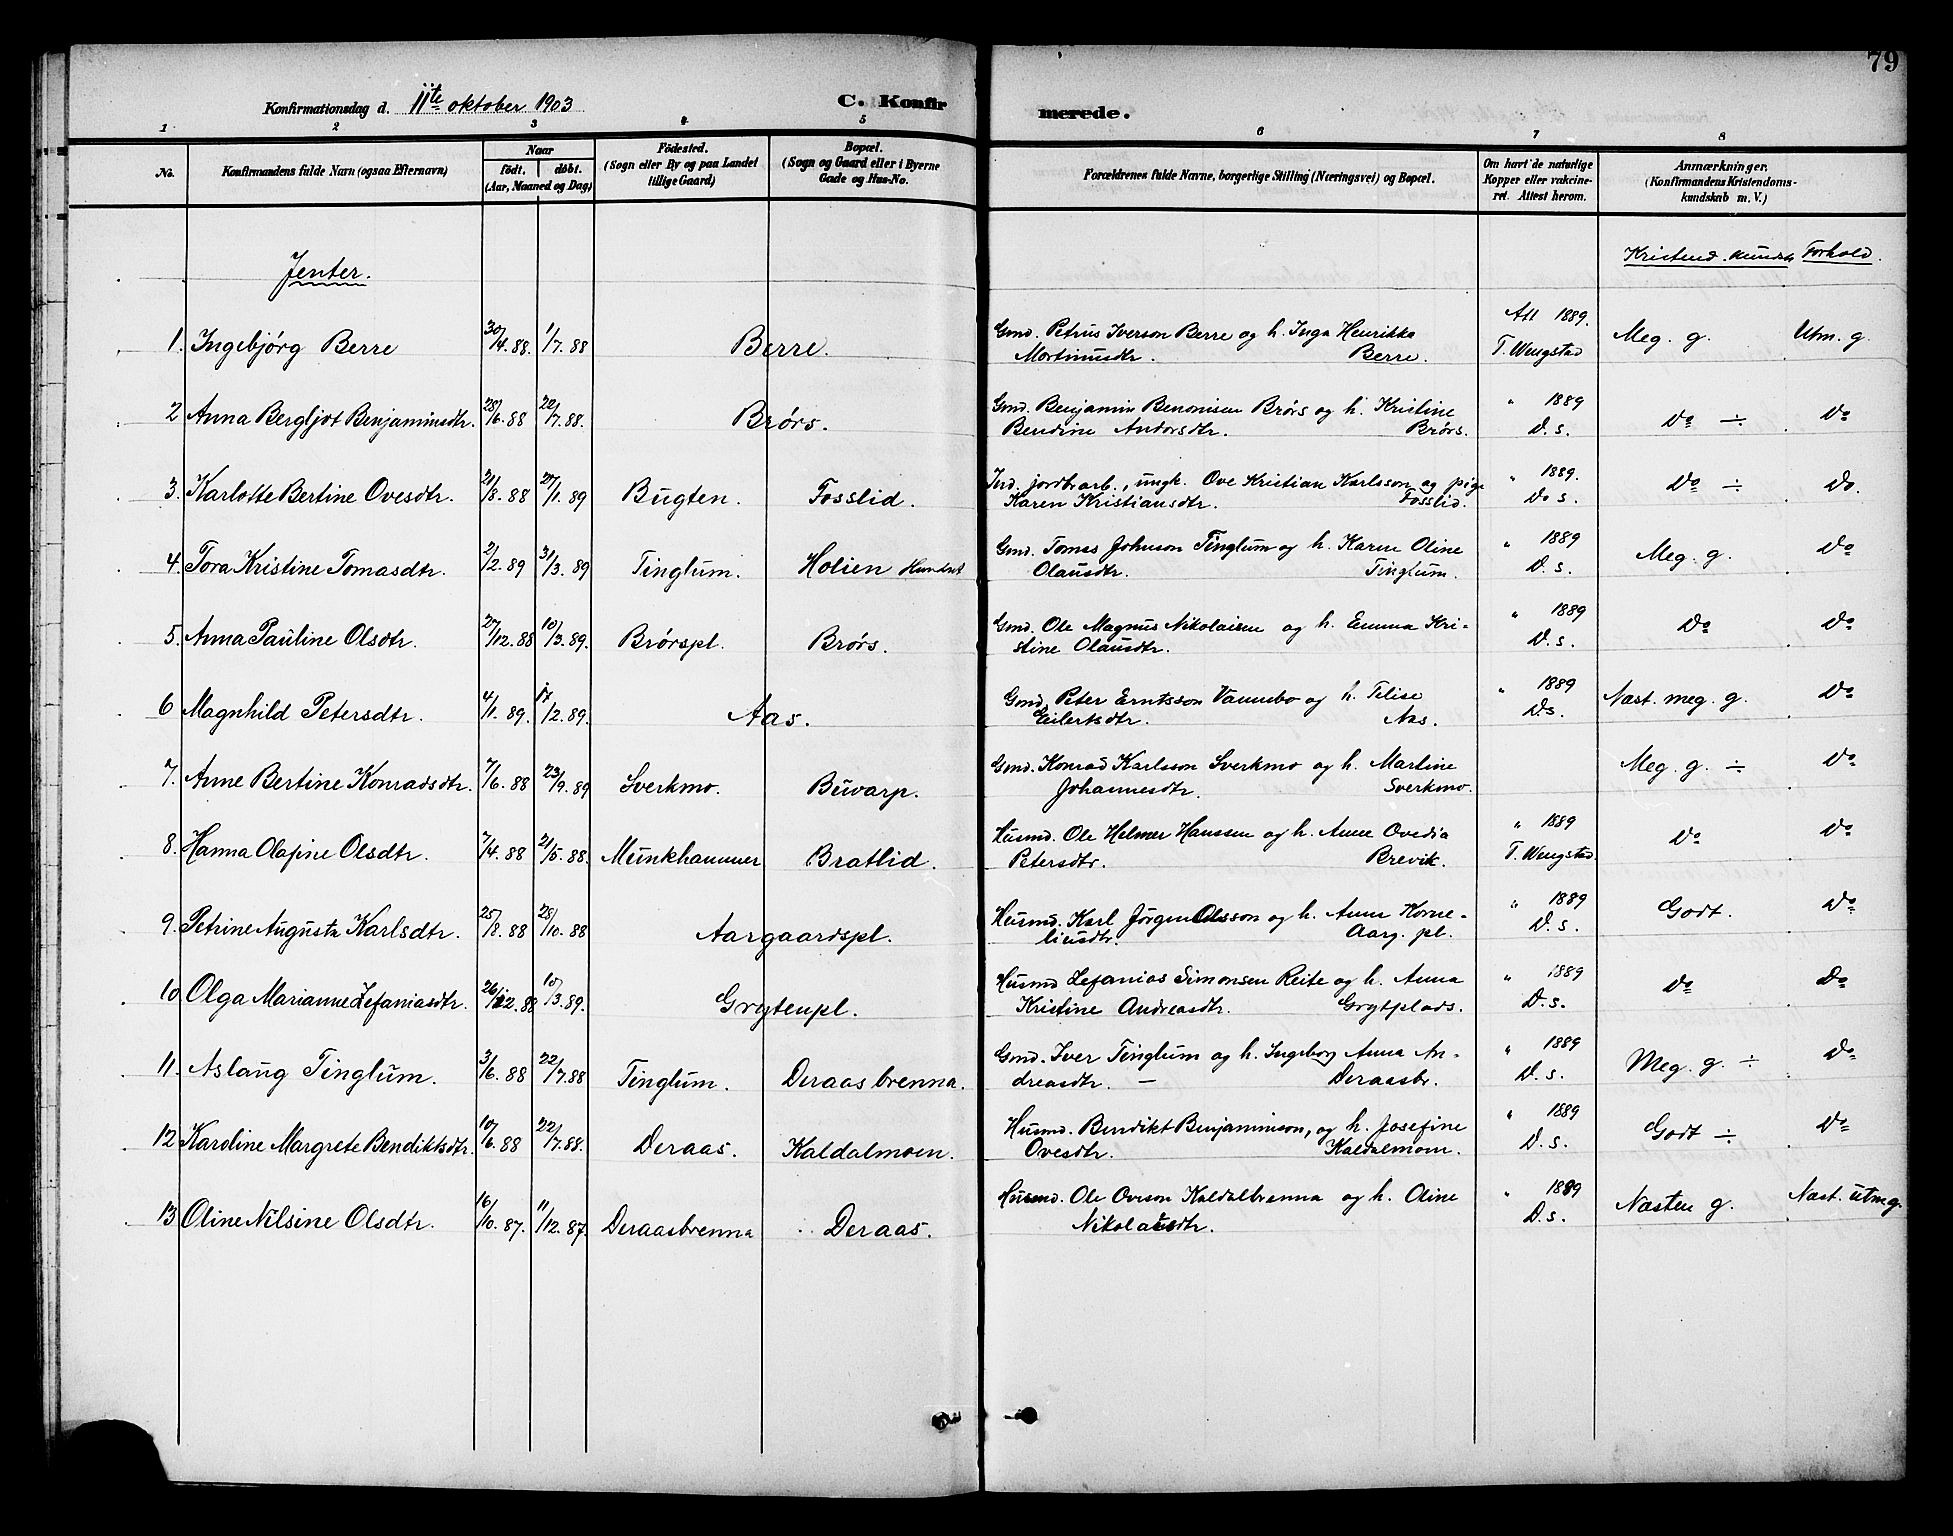 79
Konfirmationsdag d. 11te oktober 1903
C. Konfirmerede.
1 2 3 4 5 6 7 8
No.
Konfirmandens fulde Navn (ogsaa Efternavn)
Naar
födt. döbt.
(Aar, Maaned og Dag)
Födested.
(Sogn eller By og paa Landet
tillige Gaard)
Bopæl.
(Sogn og Gaard eller i Byerne
Gade og Hus-No.
Forældrenes fulde Navne, borgerlige Stilling (Næringsvei) og Bopæl.
Om havt de naturlige
Kopper eller vakcine-
ret. Attest herom.
Anmærkninger.
(Konfirmandens Kristendoms-
kundskab m. V.)
Jenter.
Kristend. kundsk. Forhold.
1. Ingebjørg Berre 30/4. 88. 1/7. 88 Berre. Gmd. Petrus Iverson Berre og h. Inga Henrikka Att 1889. Meg. g. Utm. g.
Mortinusdtr. Berre. T. Wengstad
2 Anna Bergljot Benjaminsdtr. 28/6. 88 22/7. 88. Brørs. Gmd. Benjamin Benonisen Brørs og h. Kristine " 1889 Do ÷ Do
Bendine Andorsdtr. Brørs. D. s.
3. Karlotte Bertine Ovesdtr. 21/8. 88 27/1. 89 Bugten. Fosslid. Ind. jordbr.arb., ungk. Ove Kristian Karlsson og pige " 1889. Do ÷ Do.
Karen Kristiansdtr. Fosslid. Do s.
4. Tora Kristine Tomasdtr. 2/2. 89 31/3. 89 Tinglum. Holien Gmd. Tomas Johnson Tinglum og h. Karen Oline " 1889 Meg. g. Do
Olausdtr. Tinglum. D. s.
5. Anna Pauline Olsdtr. 27/12. 88 10/3. 89. Brørspl. Brørs. Gmd. Ole Magnus Nikolaisen og h. Emma Kri- " 1889 Do Do
stine Olausdtr. D. s.
6 Magnhild Petersdtr. 4/1. 89. 17/2. 89. Aas. Gmd. Peter Erntsson Vannebo og h. Telise " 1889 Næst. meg. g. Do
Eilertsdtr. Aas. D.s.
7. Anne Bertine Konradsdtr. 7/6. 88 23/9. 89 Sverkmo. Buvarp. Gmd. Konrad Karlsson Sverkmo og h. Martine Meg. g. ÷ Do
Johannesdtr. Sverkmo.
8. Hanna Olafine Olsdtr. 7/4. 88 21/5. 88. Munkhammer Bratlid. Husmd. Ole Helmer Hanssen og h. Anne Ovedia " 1889 Do Do
Petersdtr. Brevik. T. Wengstad
9. Petrine Augusta Karlsdtr. 25/8. 88 28/10. 88 Aargaardspl. Husmd. Karl Jørgen Olsson og h. Anne Korne- " 1889 Godt. Do
liusdtr. Aarg. pl. D. s.
10. Olga Marianne Zefaniasdtr. 26/12. 88 10/3. 89. Grytenpl. Husmd Zefanias Simonsen Reite og h. Anna " 1889 Do Do
Kristine Andreasdtr. Grytplads. D. s.
11. Aslaug Tinglum. 3/6. 88 22/7. 88 Tinglum. Deraasbrenna. Gmd. Iver Tinglum og h. Ingeborg Anna An- " 1889 Meg. g. ÷ Do
dreasdtr. — Deraasbr. D. s.
12 Karoline Margrete Bendiktsdtr. 10/6. 88 22/7. 88. Deraas. Kaldalmoen. Husmd. Bendikt Benjaminson, og h. Josefine " 1889 Godt ÷ Do
Ovesdtr. Kaldalmoen. D. s.
13 Oline Nilsine Olsdtr. 16/10. 87. 11/12. 87. Deraasbrenna Deraas. Husmd. Ole Oveson Kaldalbrenna og h. Oline " 1889 Næsten g. Næst. utm g.
Nikolaisdtr. D. s.